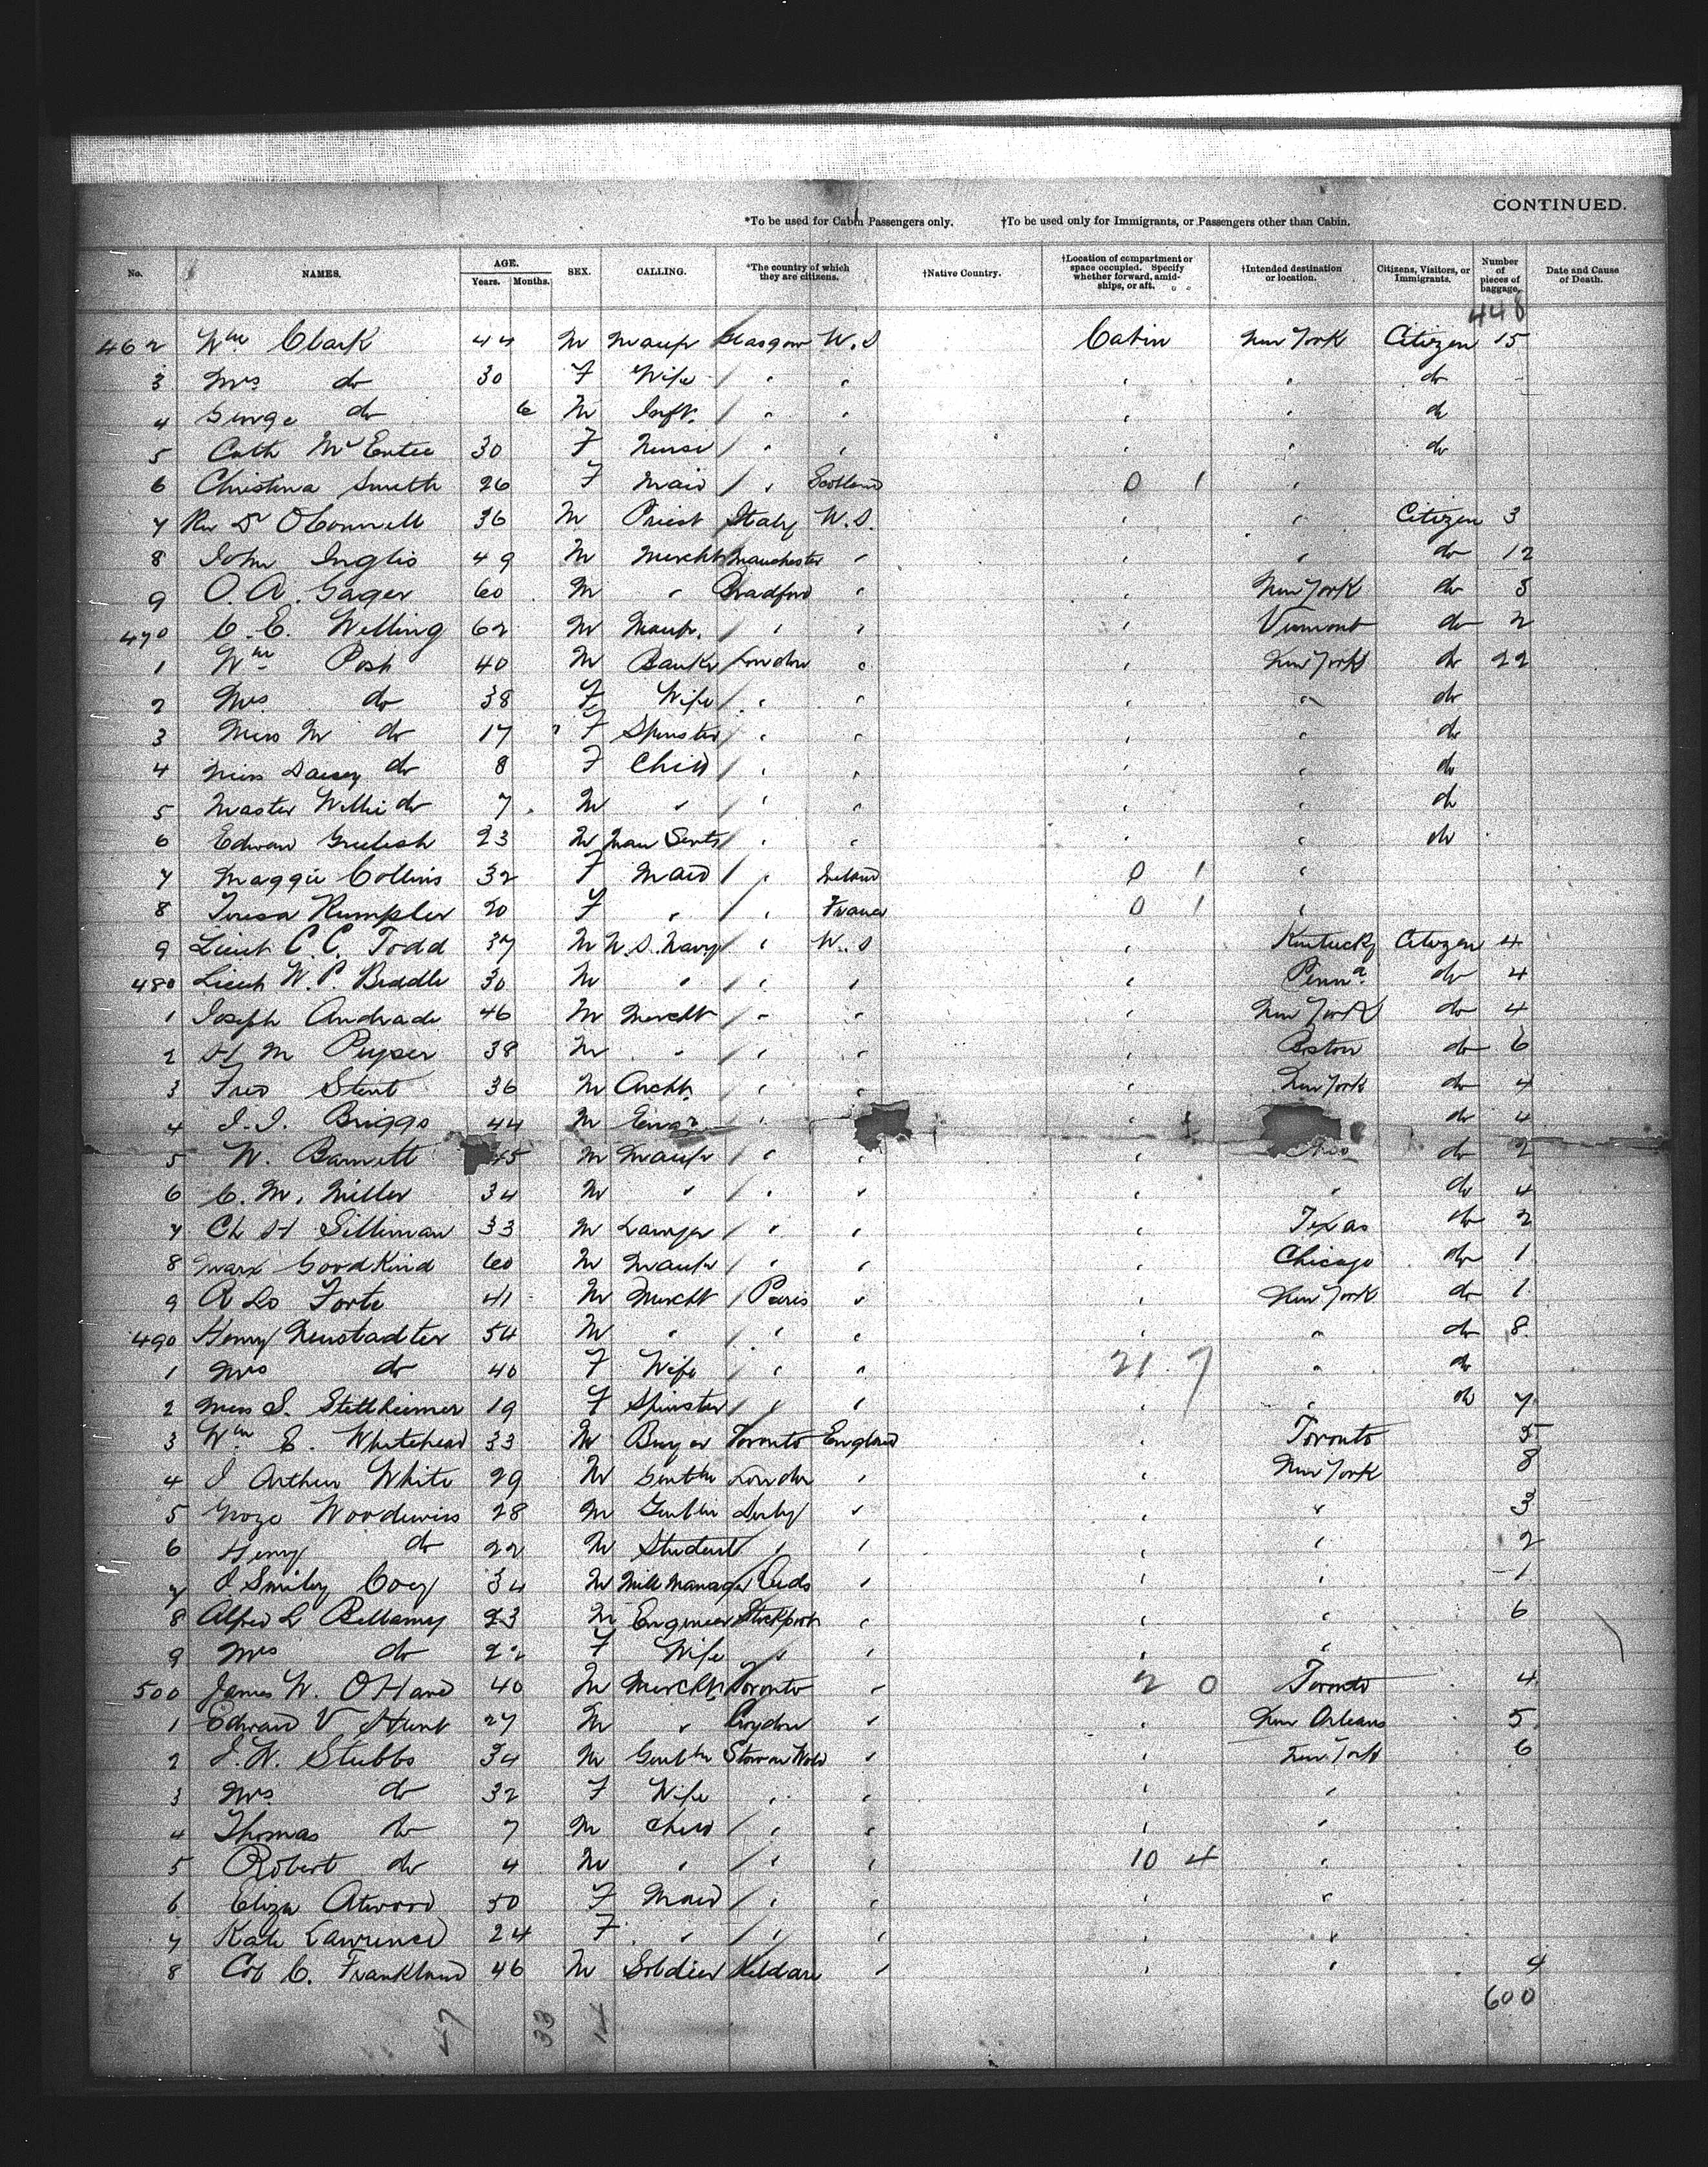 CONTINUED.
*To be used for Cabin Passengers only. †To be used only for Immigrants, or Passengers other than Cabin.
No. NAMES. AGE. Years. Months. SEX. CALLING. *The country of which they are citizens. †Native Country. †Location of compartment or space occupied. Specify whether forward, amidships, or aft. †Intended destination or location. Citizens, Visitors, or Immigrants. Number of pieces of baggage. Date and Cause of Death.
448
462 Wm Clark 44 M Manfr Glasgow U.S Cabin New York Citizen 15
3 Mrs do 30 F Wife do
4 George do 6 M Inft. do
5 Cath McEntee 30 F Nurse do
6 Christina Smith 26 F Maid Scotland 0 1
7 Rev Dr OConnell 36 M Priest Italy U.S. Citizen 3
8 John Inglis 49 M Mercht Manchester do 12
9 O. A. Gager 60 M Bradford New York do 3
470 C. E. Welling 62 M Manfr. Vermont do 2
1 Wm Post 40 M Bankr London New York do 22
2 Mrs do 38 F Wife do
3 Miss M do 17 F Spinster do
4 Miss Daisey do 8 F Child do
5 Master Willie do 7 M do
6 Edward 23 M Man Servt do
7 Maggie Collins 32 F Maid Ireland 0 1
8 Teresa Rumpler 20 F France 0 1
9 Lieut C. C. Todd 37 M U.S. Navy U.S Kentucky Citizen 4
480 Lieut W. P. Biddle 30 M Penna. do 4
1 Joseph Andrade 46 M Mercht New York do 4
2 H M Puyser 38 M Boston do 6
3 Fred Stent 36 M Archt. New York do 4
4 J. J. Briggs 44 M do 4
5 W. Barnett 45 M Manfr do 2
6 C. M. Miller 34 M do 4
7 Ch H Silliman 33 M Lawyer Texas do 2
8 Marx Goodkind 60 M Manfr Chicago do 1
9 A Lo Forte 41 M Mercht Paris New York do 1
490 Henry Neustadter 54 M do 8
1 Mrs do 40 F Wife 21 7 do
2 Miss S. Stettheimer 19 F Spinster do 7
3 Wm E. Whitehead 33 M Buyer Toronto England Toronto 5
4 J Arthur White 29 M Gentln London New York 8
5 Woodiwiss 28 M Gentln Derby 3
6 Henry do 22 M Student 2
7 J Smiley Coey 34 M Mill Manager Leeds 1
8 Alfred L Bellamy 23 M Engineer Stockport 6
9 Mrs do 22 F Wife
500 James W. OHara 40 M Mercht Toronto 2 0 Toronto 4
1 Edward V Hunt 27 M Croydon New Orleans 5
2 J. W. Stubbs 34 M Gentln Stow on Wold New York 6
3 Mrs. do 32 F Wife
4 Thomas do 7 M Child
5 Robert do 4 M 10 4
6 Eliza Atwood 50 F Maid
7 Kate Lawrence 24 F
8 Col C. Frankland 46 M Soldier Kildare 4
600
47 33 14